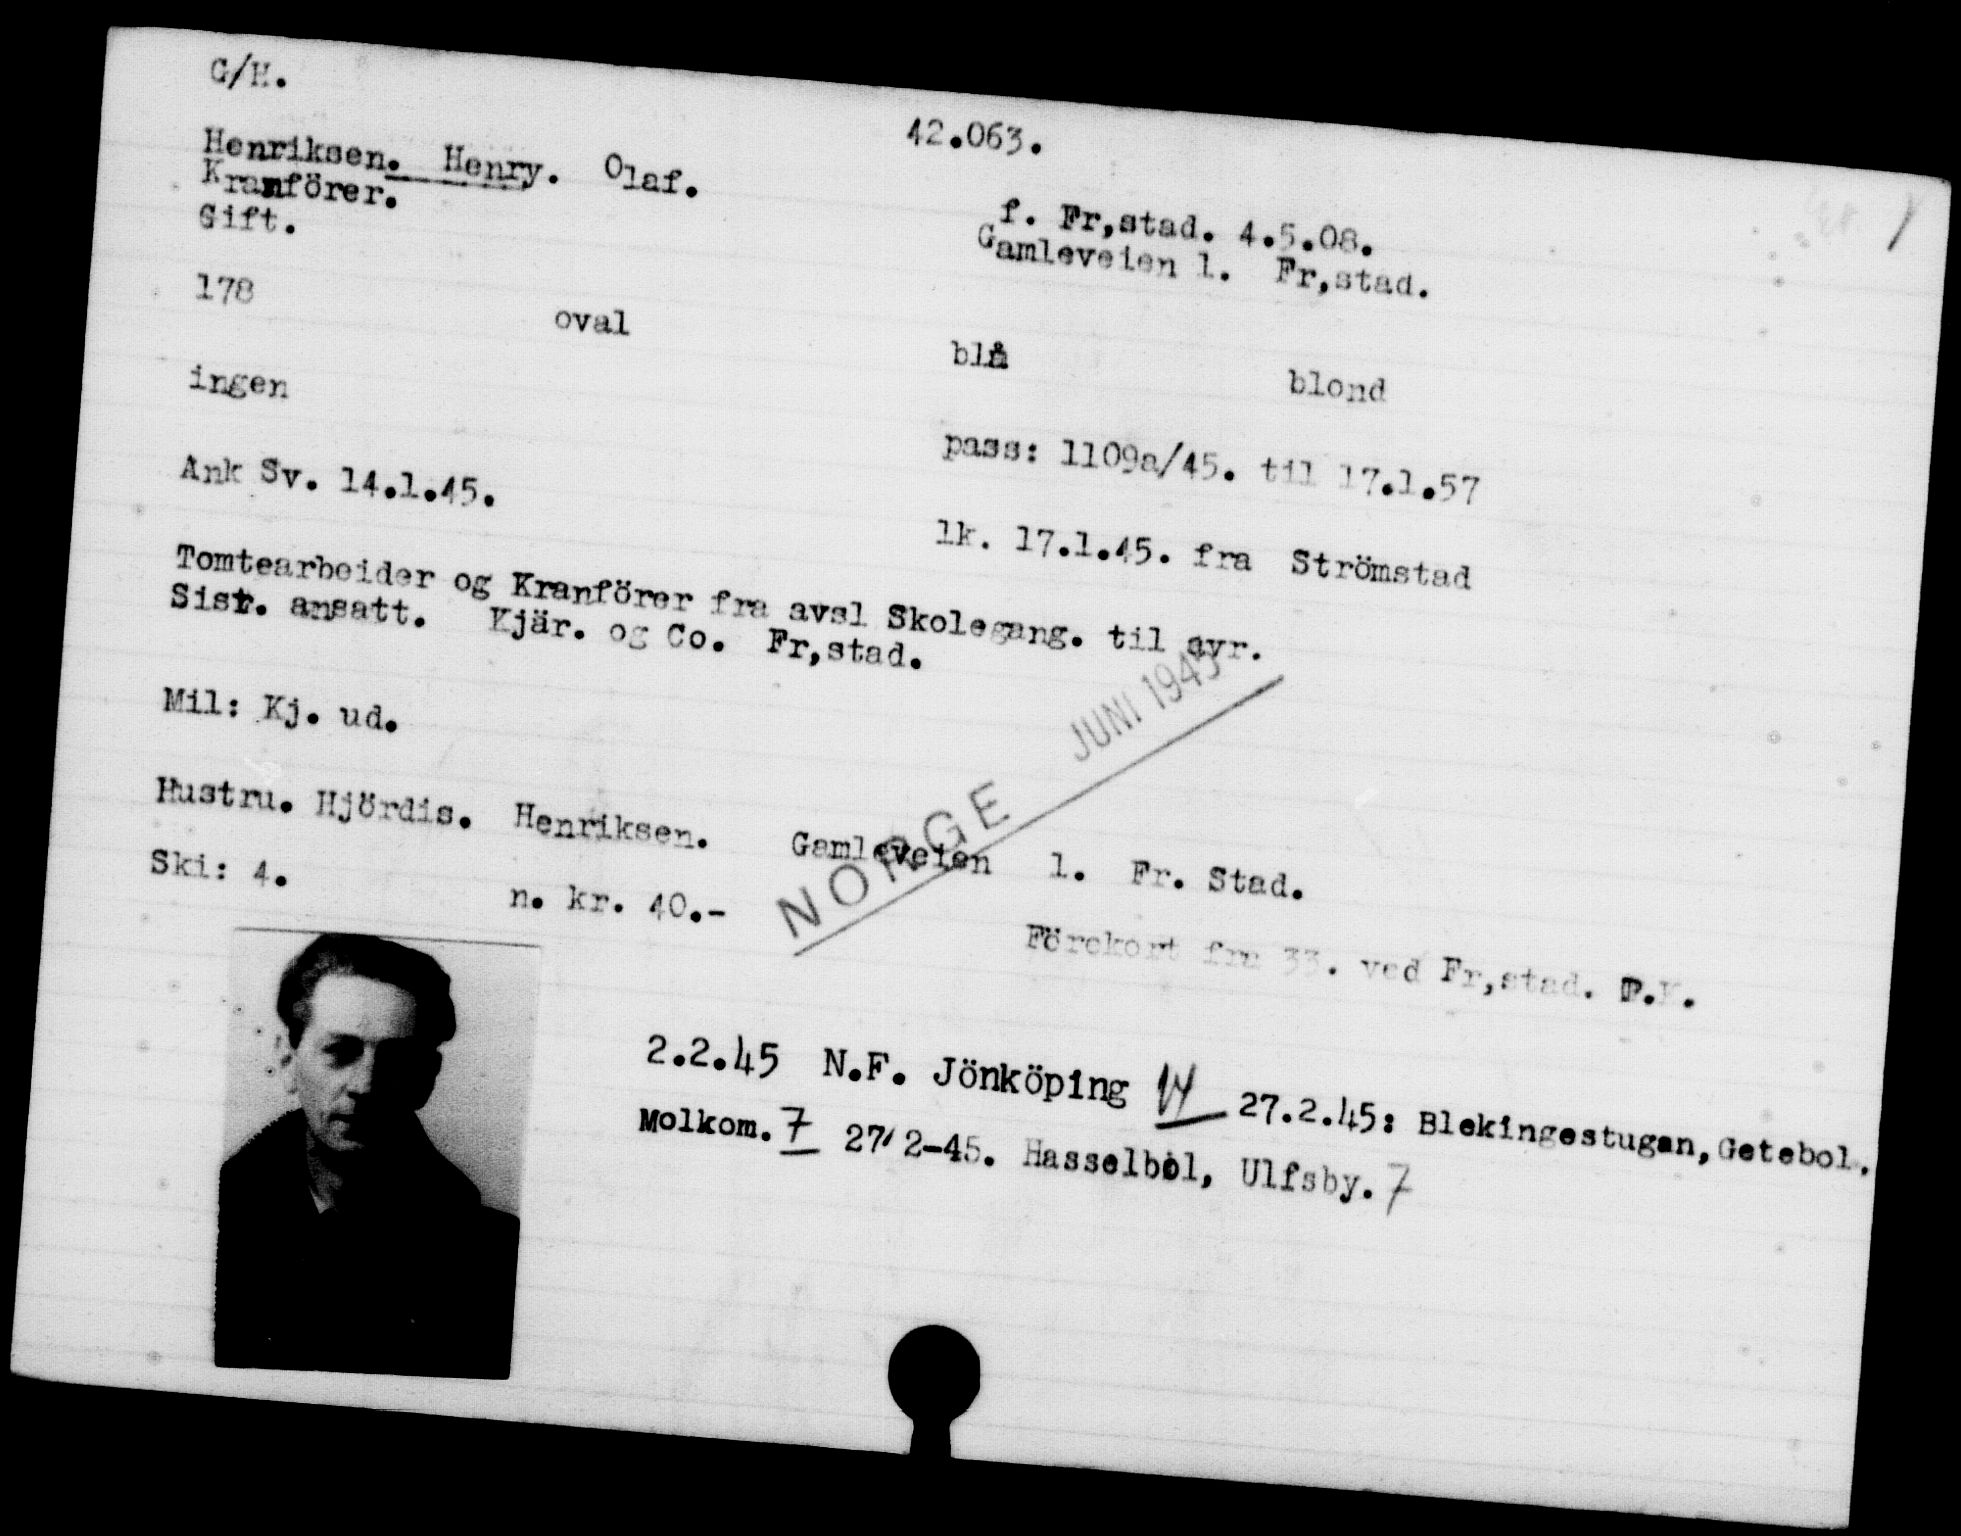 G/H.
42.063.
Henriksen. Henry. Olaf.
Kranförer.
f. Fr,stad. 4.5.08.
Gift.
Gamleveien 1. Fr,stad.
178 oval blå blond
ingen
pass: 1109a/45. til 17.1.57
Ank Sv. 14.1.45.
lk. 17.1.45. fra Strömstad
Tomtearbeider og Kranförer fra avsl Skolegang. til dyr.
Sist. ansatt. Kjär. og Co. Fr,stad.
JUNI 1945
NORGE
Mil: Kj. ud.
Hustru. Hjördis. Henriksen. Gamleveien 1. Fr. Stad.
Ski: 4. n. kr. 40.-
Förekort fra 33. ved Fr,stad. P.K.
2.2.45 N.F. Jönköping 27.2.45: Blekingestugan, Getebol.
Molkom. 7 27/2-45. Hasselbol, Ulfsby. 7